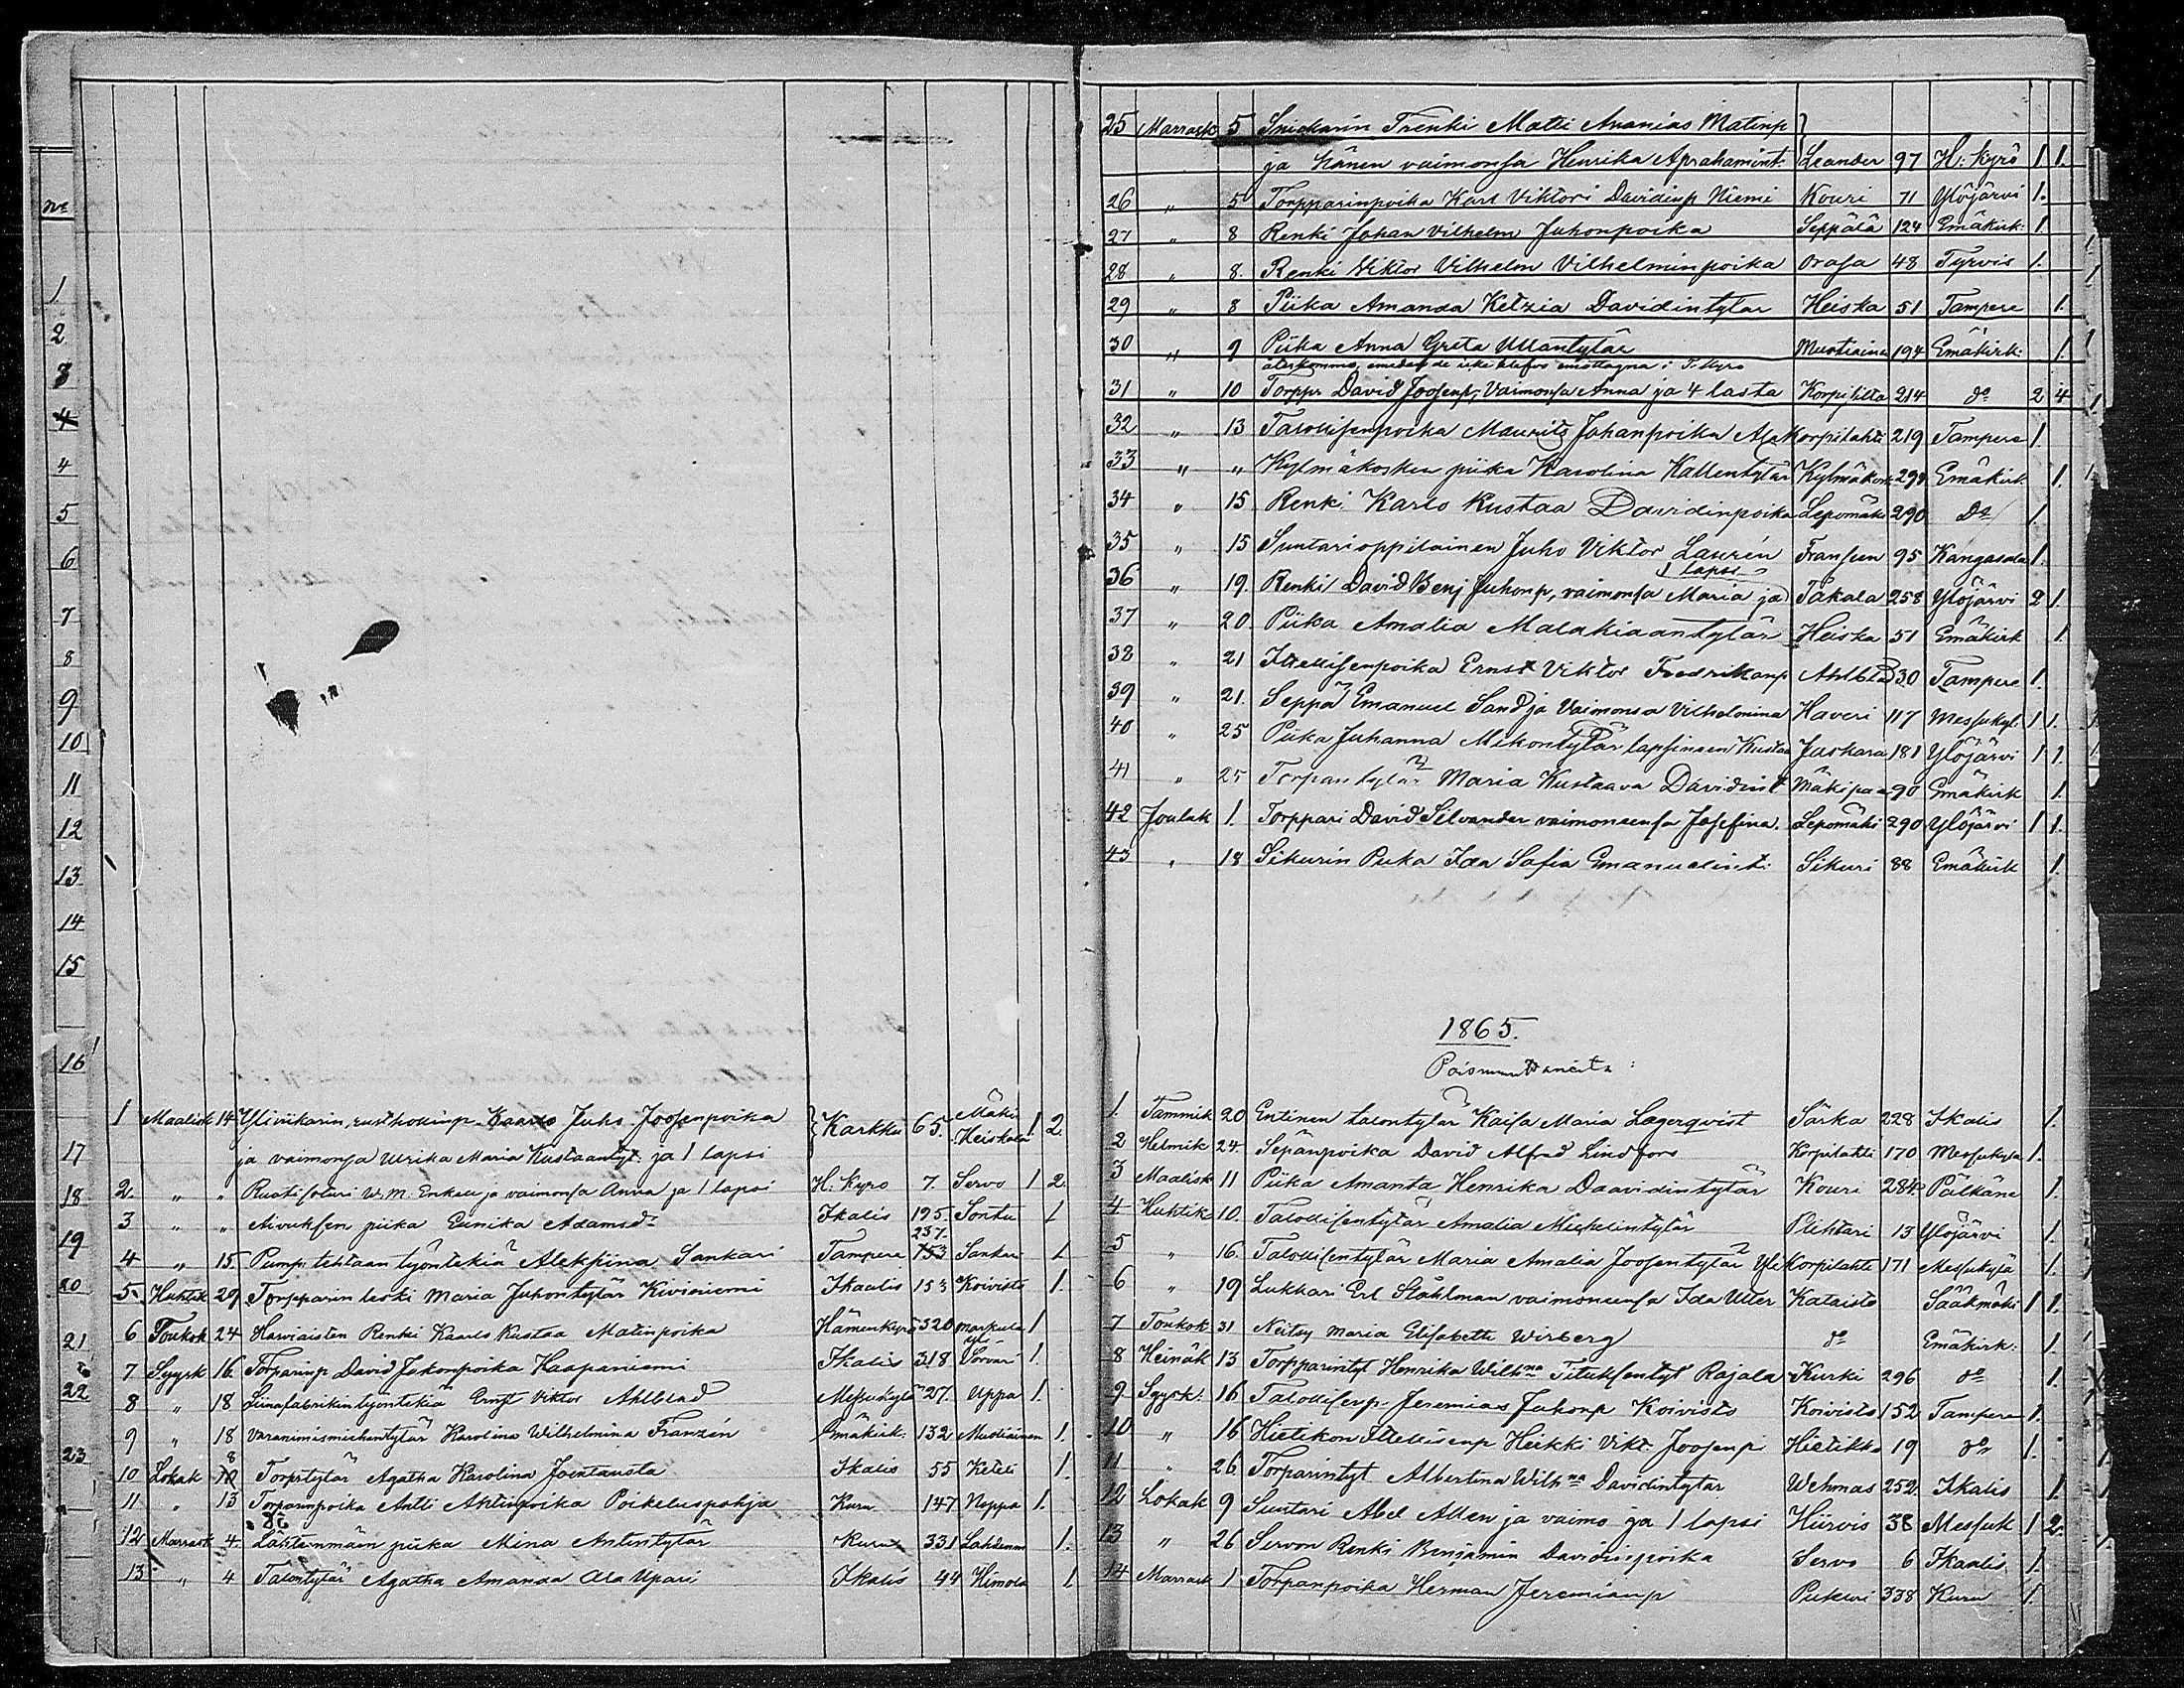 No
1
2
3
4
4
5
6
7
8
9
10
11
12
13
14
15
16
17
18
19
20
21
22
23
1 Maalisk 14 Ylivikarin, rusthollinp. Kaarlo Juho Joosenpoika } Karkku 65. Mäki Heiskala 1 2
ja vaimonsa Ulrika Maria Kustaantyt: ja 1 lapsi
2. " " Ruotisoturi W. M. Enkell ja vaimonsa Anna ja 1 lapsi H. Kyro 7. Servo 1 2
3 " " piika Eunika Adamsdr Ikalis 195 Sontu 1
4 " 15. Pump. tehtaan työntekiä Aleksina Sankari Tampere 237. 153 Sankari 1
5. Huhtik 29 Torpparin leski Maria Juhontytär Kiviniemi Ikaalis 153 Koivisto 1.
6 Toukok 24 Harviaisten Renki Kaarlo Kustaa Matinpoika Hämenkyrö 320 Markula 1
7 Syysk 16. Torparinp David Jakonpoika Haapaniemi Ikalis 318 Yli Sorvari 1.
8 " 18 Liinafabrikin työntekiä Ernst Viktor Ahlblad Messukylä 27. Uppa 1.
9 " 18 Karolina Wilhelmina Franzén Emäkirk: 132 Mustiainen 1.
10 Lokak 8 Torpitytär Agatha Karolina Jointausta Ikalis 55 Keteli 1.
11 " 13 Torparinpoika Antti Antinpoika Poikeluspohja Kuru 147 Noppa 1.
12 Marrask 4. Lähteenmäen piika Mina Antintytär Kuru 331 Lahdenm 1.
13 " 4 Talontytär Agatha Amanda Ala Upari Ikalis 44 Himola 1
25 Marrask 5 Snickarin Trenki Matti Ananias Matinp }
ja hänen vaimonsa Henrika Aprahamint. Leander 97 H: Kyrö 1 1.
26 " 5 Torpparinpoika Karl Viktori Davidinp Niemi Kouri 71 Ylöjärvi 1.
27 " 8 Renki Johan Vilhelm Juhonpoika Seppälä 124 Emäkirk: 1
28 " 8. Renki Viktor Vilhelm Vilhelminpoika Orasa 48 Tyrvis 1.
29 " 8 Piika Amanda Ketzia Davidintytar Heiska 51 Tampere 1.
30 " 9 Piika Anna Greta Ullantytär Mustiaine 194 Emäkirk: 1.
återkommo, emedan de icke blefvo emottagna i T. Kyro
31 " 10 Torppr David Joosenp, Vaimonsa Anna ja 4 lasta Korpililta 214 do 2 4
32 " 13 Talollisenpoika Maurits Johanpoika Ala Korpilahti 219 Tampere 1.
33 " " Kylmäkosken piika Karolina Kallentytär Kylmäkosk 299 Emäkirk 1.
34 " 15 Renki Karlo Kustaa Davidinpoika Lepomäki 290 do 1.
35 " 15 Suntarioppilainen Juho Viktor Laurén Fransen 95 Kangasala 1.
36 " 19. Renki David Benj Juhonp, vaimonsa Maria ja 1 lapsi Takala 258 Ylöjärvi 2 1.
37 " 20. Piika Amalia Malakiaantytär Heiska 51 Emäkirk 1.
38 " 21 Itsellisenpoika Ernst Viktor Fredrikanp Ahlbla 230 Tampere 1.
39 " 21. Seppä Emanuel Sand ja Vaimonsa Vilhelmina Haveri 117 Messukyl. 1 1.
40 " 25 Piika Juhanna Mikontytär lapsineen Kustaa Juskara 181 Ylöjärvi 1 1.
41 " 25 Torpantytär Maria Kustaava Davidint Mäkipaa 90 Emäkirk 1.
42 Joulak 1. Torppari David Silvander vaimoneensa Josefina. Lepomäki 290 Ylöjärvi 1 1.
43 " 18 Sikurin Piika Ida Sofia Emanuelint: Sikuri 88 Emäkirk 1.
1865.
Poismuuttaneita:
1. Tammik 20 Entinen talontytär Kaisa Maria Lagerqvist Särka 228 Ikalis 1.
2 Helmik 24. Sepänpoika David Alfred Lindfors Korpilahti 170 Messukyla 1.
3 Maalisk 11 Piika Amanta Henrika Daavidintytär Kouri 284. Pälkäne 1.
4 Huhtik 10. Talollisentytär Amalia Mikkelintytär Plihtari 13 Ylöjärvi 1.
5 " 16. Talollisentytär Maria Amalia Joosentytär Yli Korpilahti 171 Messukylä 1.
6 " 19 Lukkari Erl Ståhlman vaimoneensa Ida Utter Kataisto Sääksmäki 1 1.
7 Toukok 31 Neitsy Maria Elisabetti Wirberg do Emäkirk: 1.
8 Heinäk 13 Torpparintyt Henrika Wilhna Titukssentyt Rajala Kurki 296 do 1.
9 Syysk. 16 Talollisenp. Jeremias Juhonp Koivisto Koivisto 152 Tampere 1.
10 " 16 Hietikon Itsellisenp Heikki Vikt. Joosenp Hietikko 19 do 1.
11 " 26 Torparintyt Albertina Wilhna Davidintytar Wehmas 252. Ikalis 1.
12 Lokak 9 Suutari Abel Allen ja vaimo ja 1 lapsi Hiirvis 38 Messuk 1 2.
13 " 26 Servon Renki Benjamin Davidinpoika Servo 6 Ikaalis 1.
14 Marrask 1 Torpanpoika Herman Jeremianp Piikuri 338 Kuru 1.